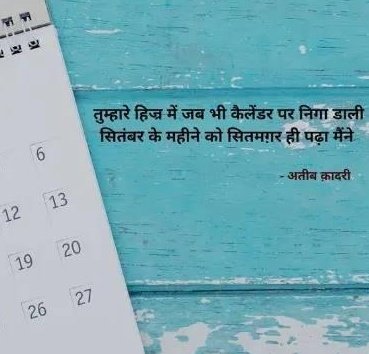 तुम्हारे हिज्र में जब भी कैलेंडर पर निगा डाली
सितंबर के महीने को सितमग़र ही पढ़ा मैंने
- अतीब क़ादरी
6
12 13
19 20
26 27